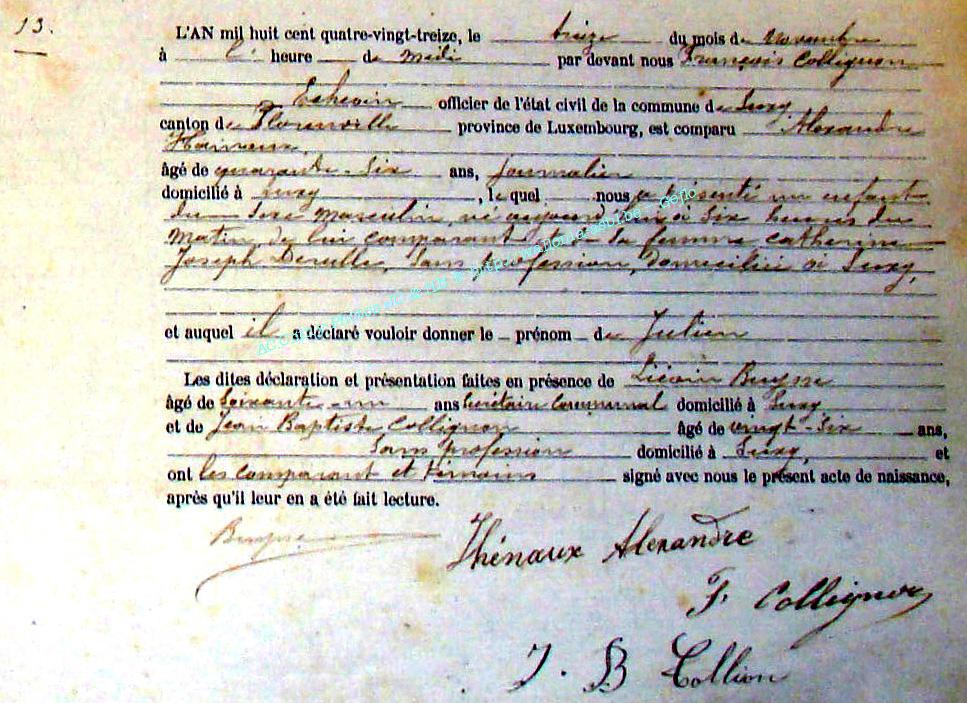 13.
L'AN mil huit cent quatre-vingt-treize, le treize du mois de Novembre
à l' heure de midi par devant nous François Collignon
Echevin officier de l'état civil de la commune de Suxy
canton de Florenville province de Luxembourg, est comparu Alexandre
âgé de quarante-six ans, Journalier
domicilié à Suxy, lequel nous a présenté un enfant
du sexe masculin né aujourd'hui à six heures du
matin, de lui comparant et de sa femme Catherine
Joseph, sans profession, domiciliée à Suxy,
et auquel il a déclaré vouloir donner le prénom de Julien
Les dites déclaration et présentation faites en présence de Buysse
âgé de soixante-un ans Secrétaire Communal domicilié à Suxy
et de Jean Baptiste Collignon âgé de vingt-six ans,
Sans profession domicilié à Suxy, et
ont les comparant et témoins signé avec nous le présent acte de naissance,
après qu'il leur en a été fait lecture.
Buysse
Thénaux Alexandre
F. Collignon
J. B Collion